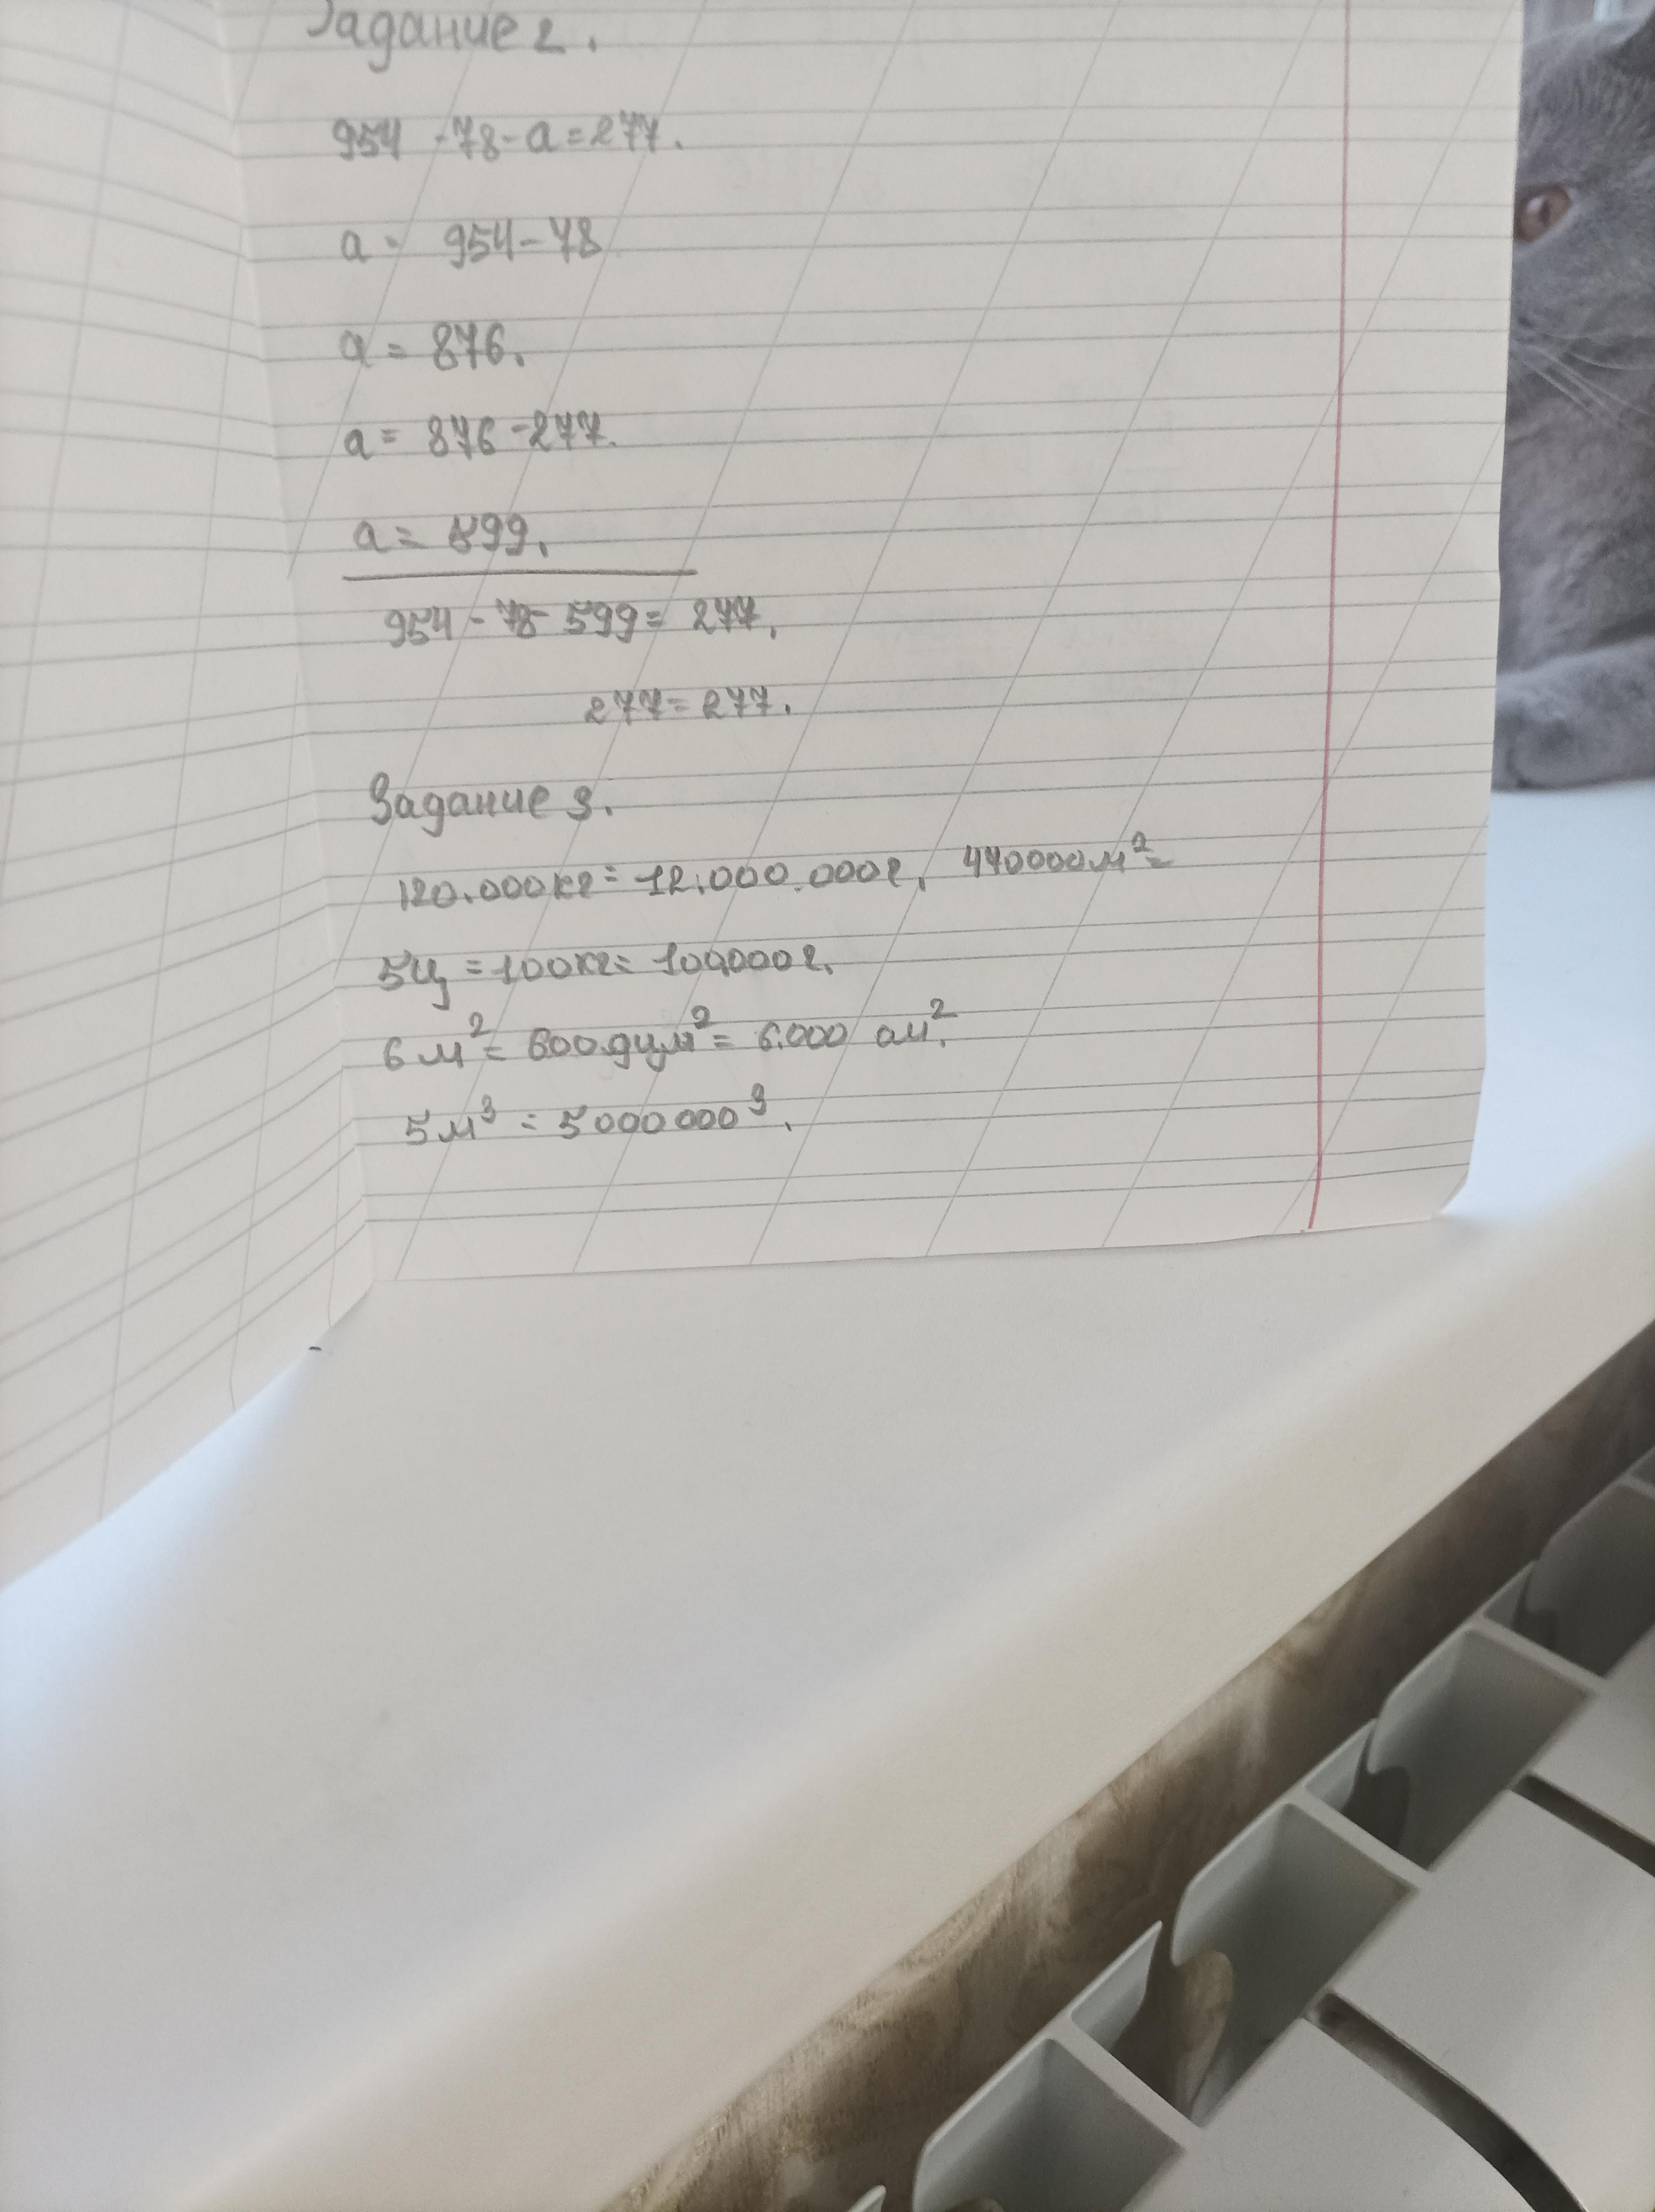 Задание 2.
954 - 78 - а = 277.
а = 954 - 78
а = 876.
а = 876 - 277.
а = 899.
954 - 78 - 599 = 277.
277 = 277.
Задание 3.
120.000кг = 12.000.000г, 440000м² =
5ц = 100кг = 100000г.
6 м² = 600дцм² = 6.000 см².
5м³ = 5000000³.